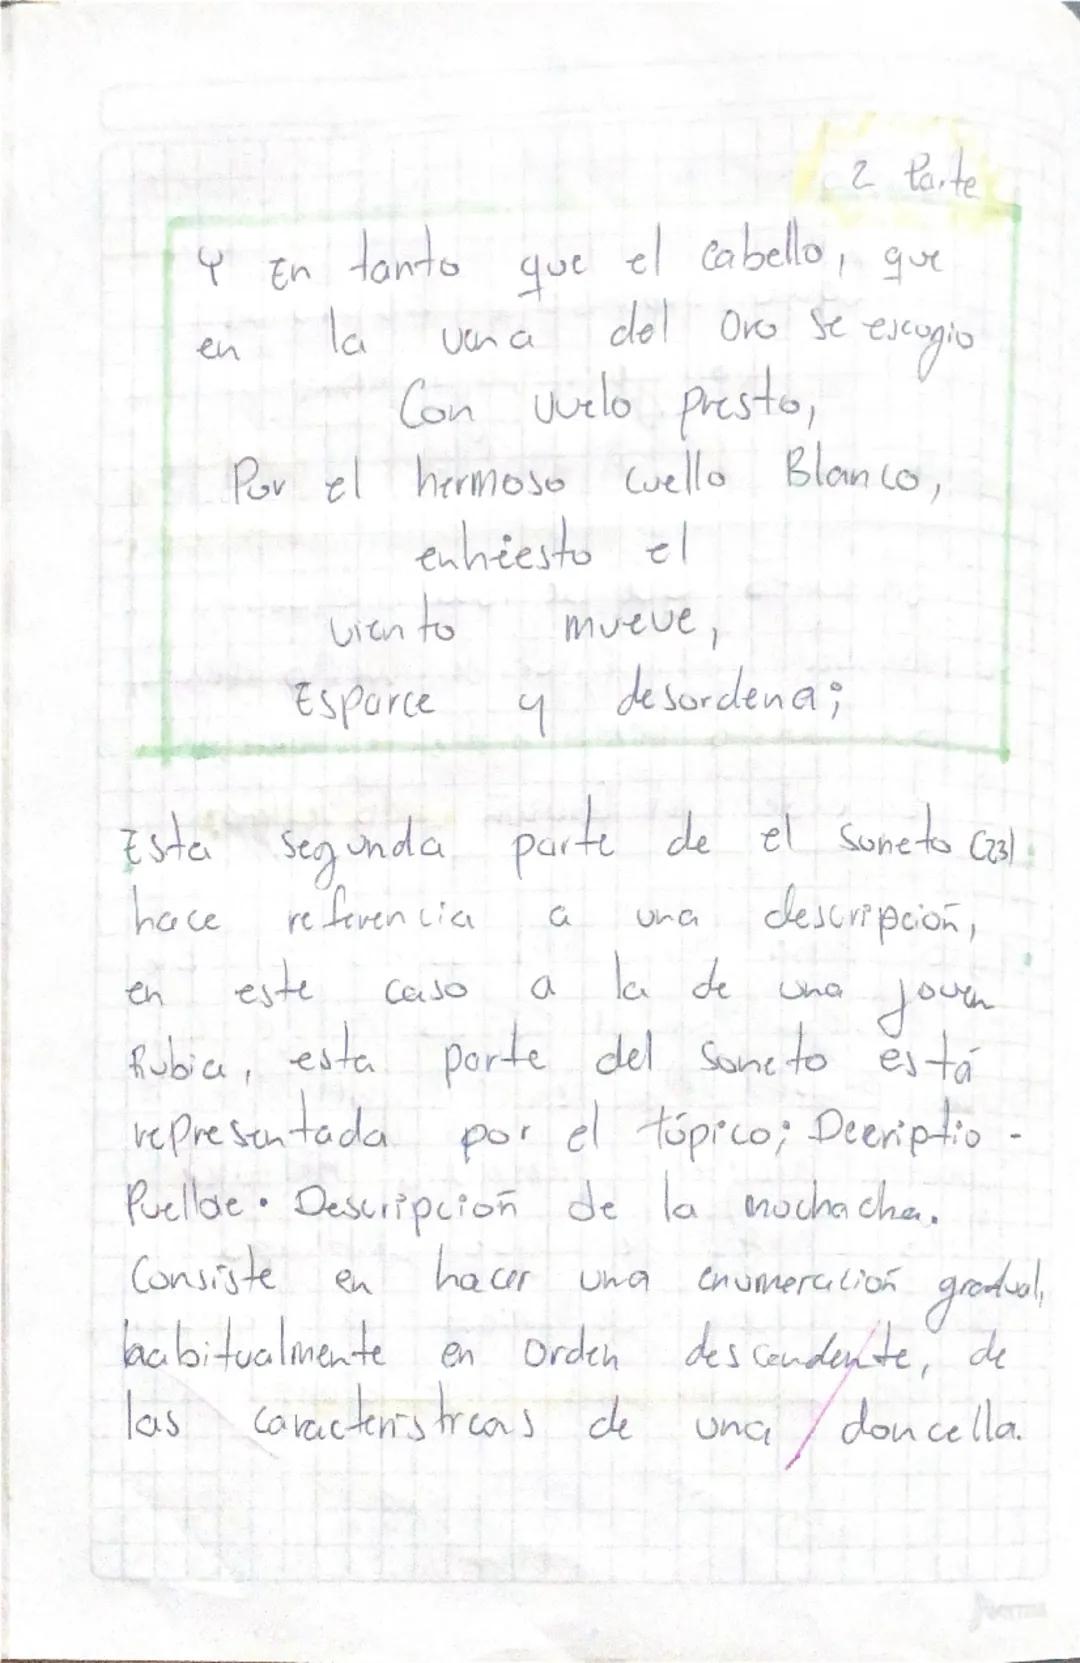 2 Parte
Y En tanto que el cabello, que
en la vena del Oro se escogio
Con vuelo presto,
Por el hermoso cuello Blanco,
enhiesto el
viento mueve,
Esparce y desordena;
Esta segunda parte de el Soneto (23)
hace referencia a una descripción,
en este caso a la de una joven
Rubia, esta parte del Soneto está
representada por el tópico; Decriptio -
Puellae. Descripción de la muchacha.
Consiste en hacer una enumeración gradual,
habitualmente en Orden descendente, de
las características de una doncella.